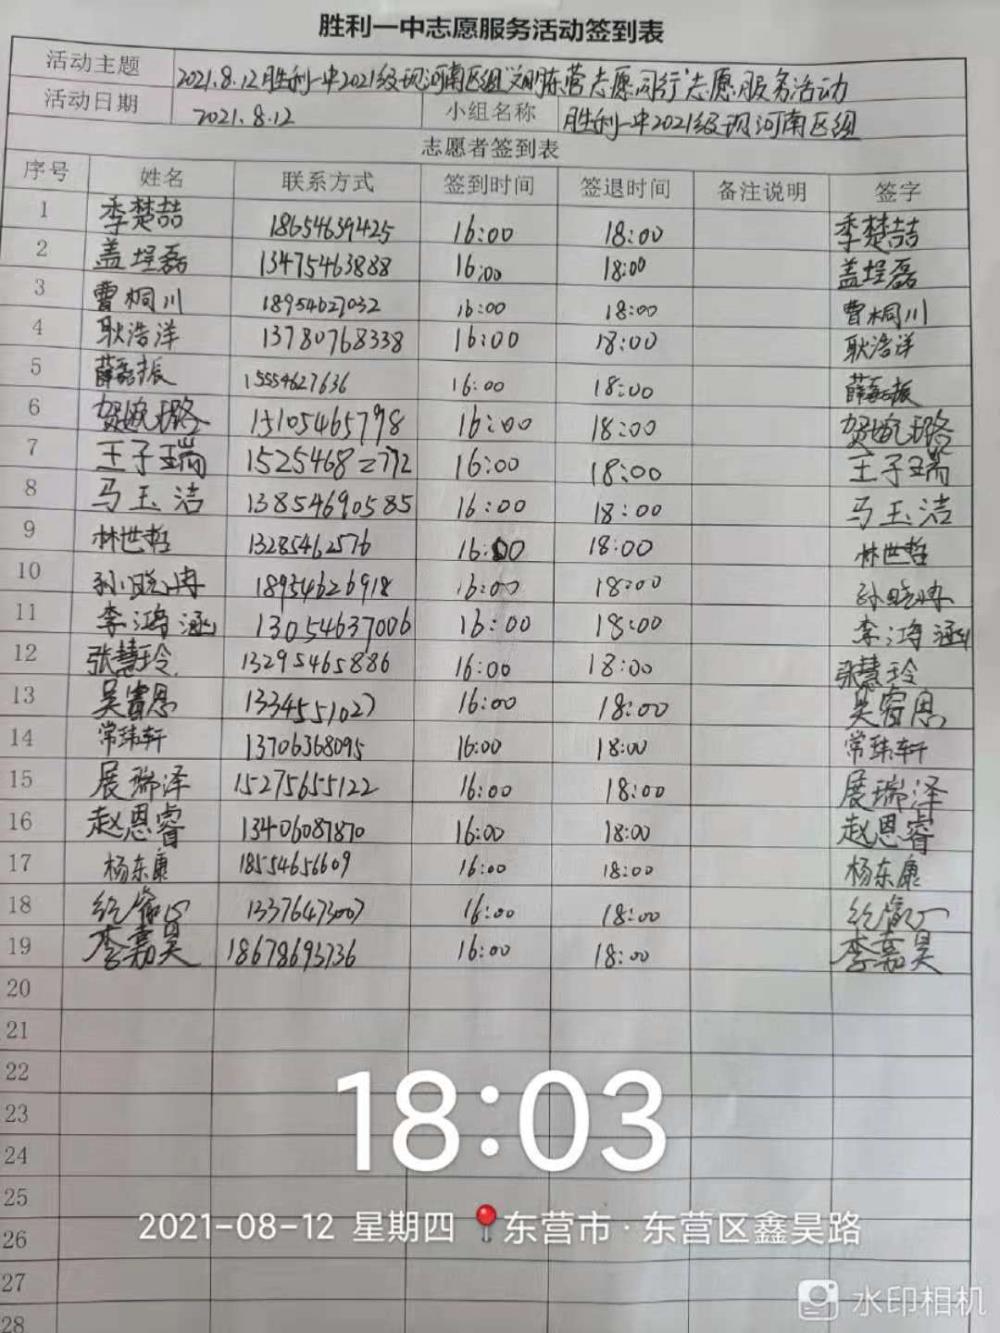 胜利一中志愿服务活动签到表
活动主题 2021.8.12胜利一中2021级现河南区组"文明东营志愿同行"志愿服务活动
活动日期 2021.8.12 小组名称 胜利一中2021级现河南区组
志愿者签到表
序号 姓名 联系方式 签到时间 签退时间 备注说明 签字
1 季楚喆 18654659425 16:00 18:00 季楚喆
2 盖埕磊 13475463888 16:00 18:00 盖埕磊
3 曹桐川 18954627032 16:00 18:00 曹桐川
4 耿浩洋 13780768338 16:00 18:00 耿浩洋
5 薛磊振 15554627636 16:00 18:00 薛磊振
6 贺婉璐 15105465798 16:00 18:00 贺婉璐
7 王子瑞 15254682772 16:00 18:00 王子瑞
8 马玉洁 13854690585 16:00 18:00 马玉洁
9 林世哲 13285462576 16:00 18:00 林世哲
10 孙晓冉 18954626918 16:00 18:00
11 李鸿涵 13054637006 16:00 18:00 李鸿涵
12 张慧玲 13295465886 16:00 18:00 张慧玲
13 吴睿思 13345551027 16:00 18:00 吴睿思
14 常玮轩 13706368095 16:00 18:00 常玮轩
15 展瑞泽 15275655122 16:00 18:00 展瑞泽
16 赵恩睿 13406087870 16:00 18:00 赵恩睿
17 杨东康 18554656609 16:00 18:00 杨东康
18 13376473007 16:00 18:00
19 李嘉昊 18678693736 16:00 18:00 李嘉昊
20
21
22
23
24
25
26
27
28
18:03
2021-08-12 星期四 东营市·东营区鑫吴路
水印相机